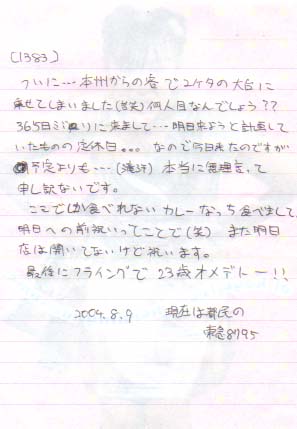 (1383)
ついに…本州からの客で2ケタの大台に
乗せてしまいました(苦笑)何人目なんでしょう??
365日ぶりに来まして…明日来ようと計画して
いたものの定休日。。。なので今日来たのですが
予定よりも…(滝汗)本当に無理言って
申し訳ないです。
ここでしか食べれないカレーなっち食べまして
明日への前祝いってことで(笑)また明日
店は開いてないけど祝います。
最後にフライングで23歳オメデトー!!
2004.8.9 現在は都民の
東急8795